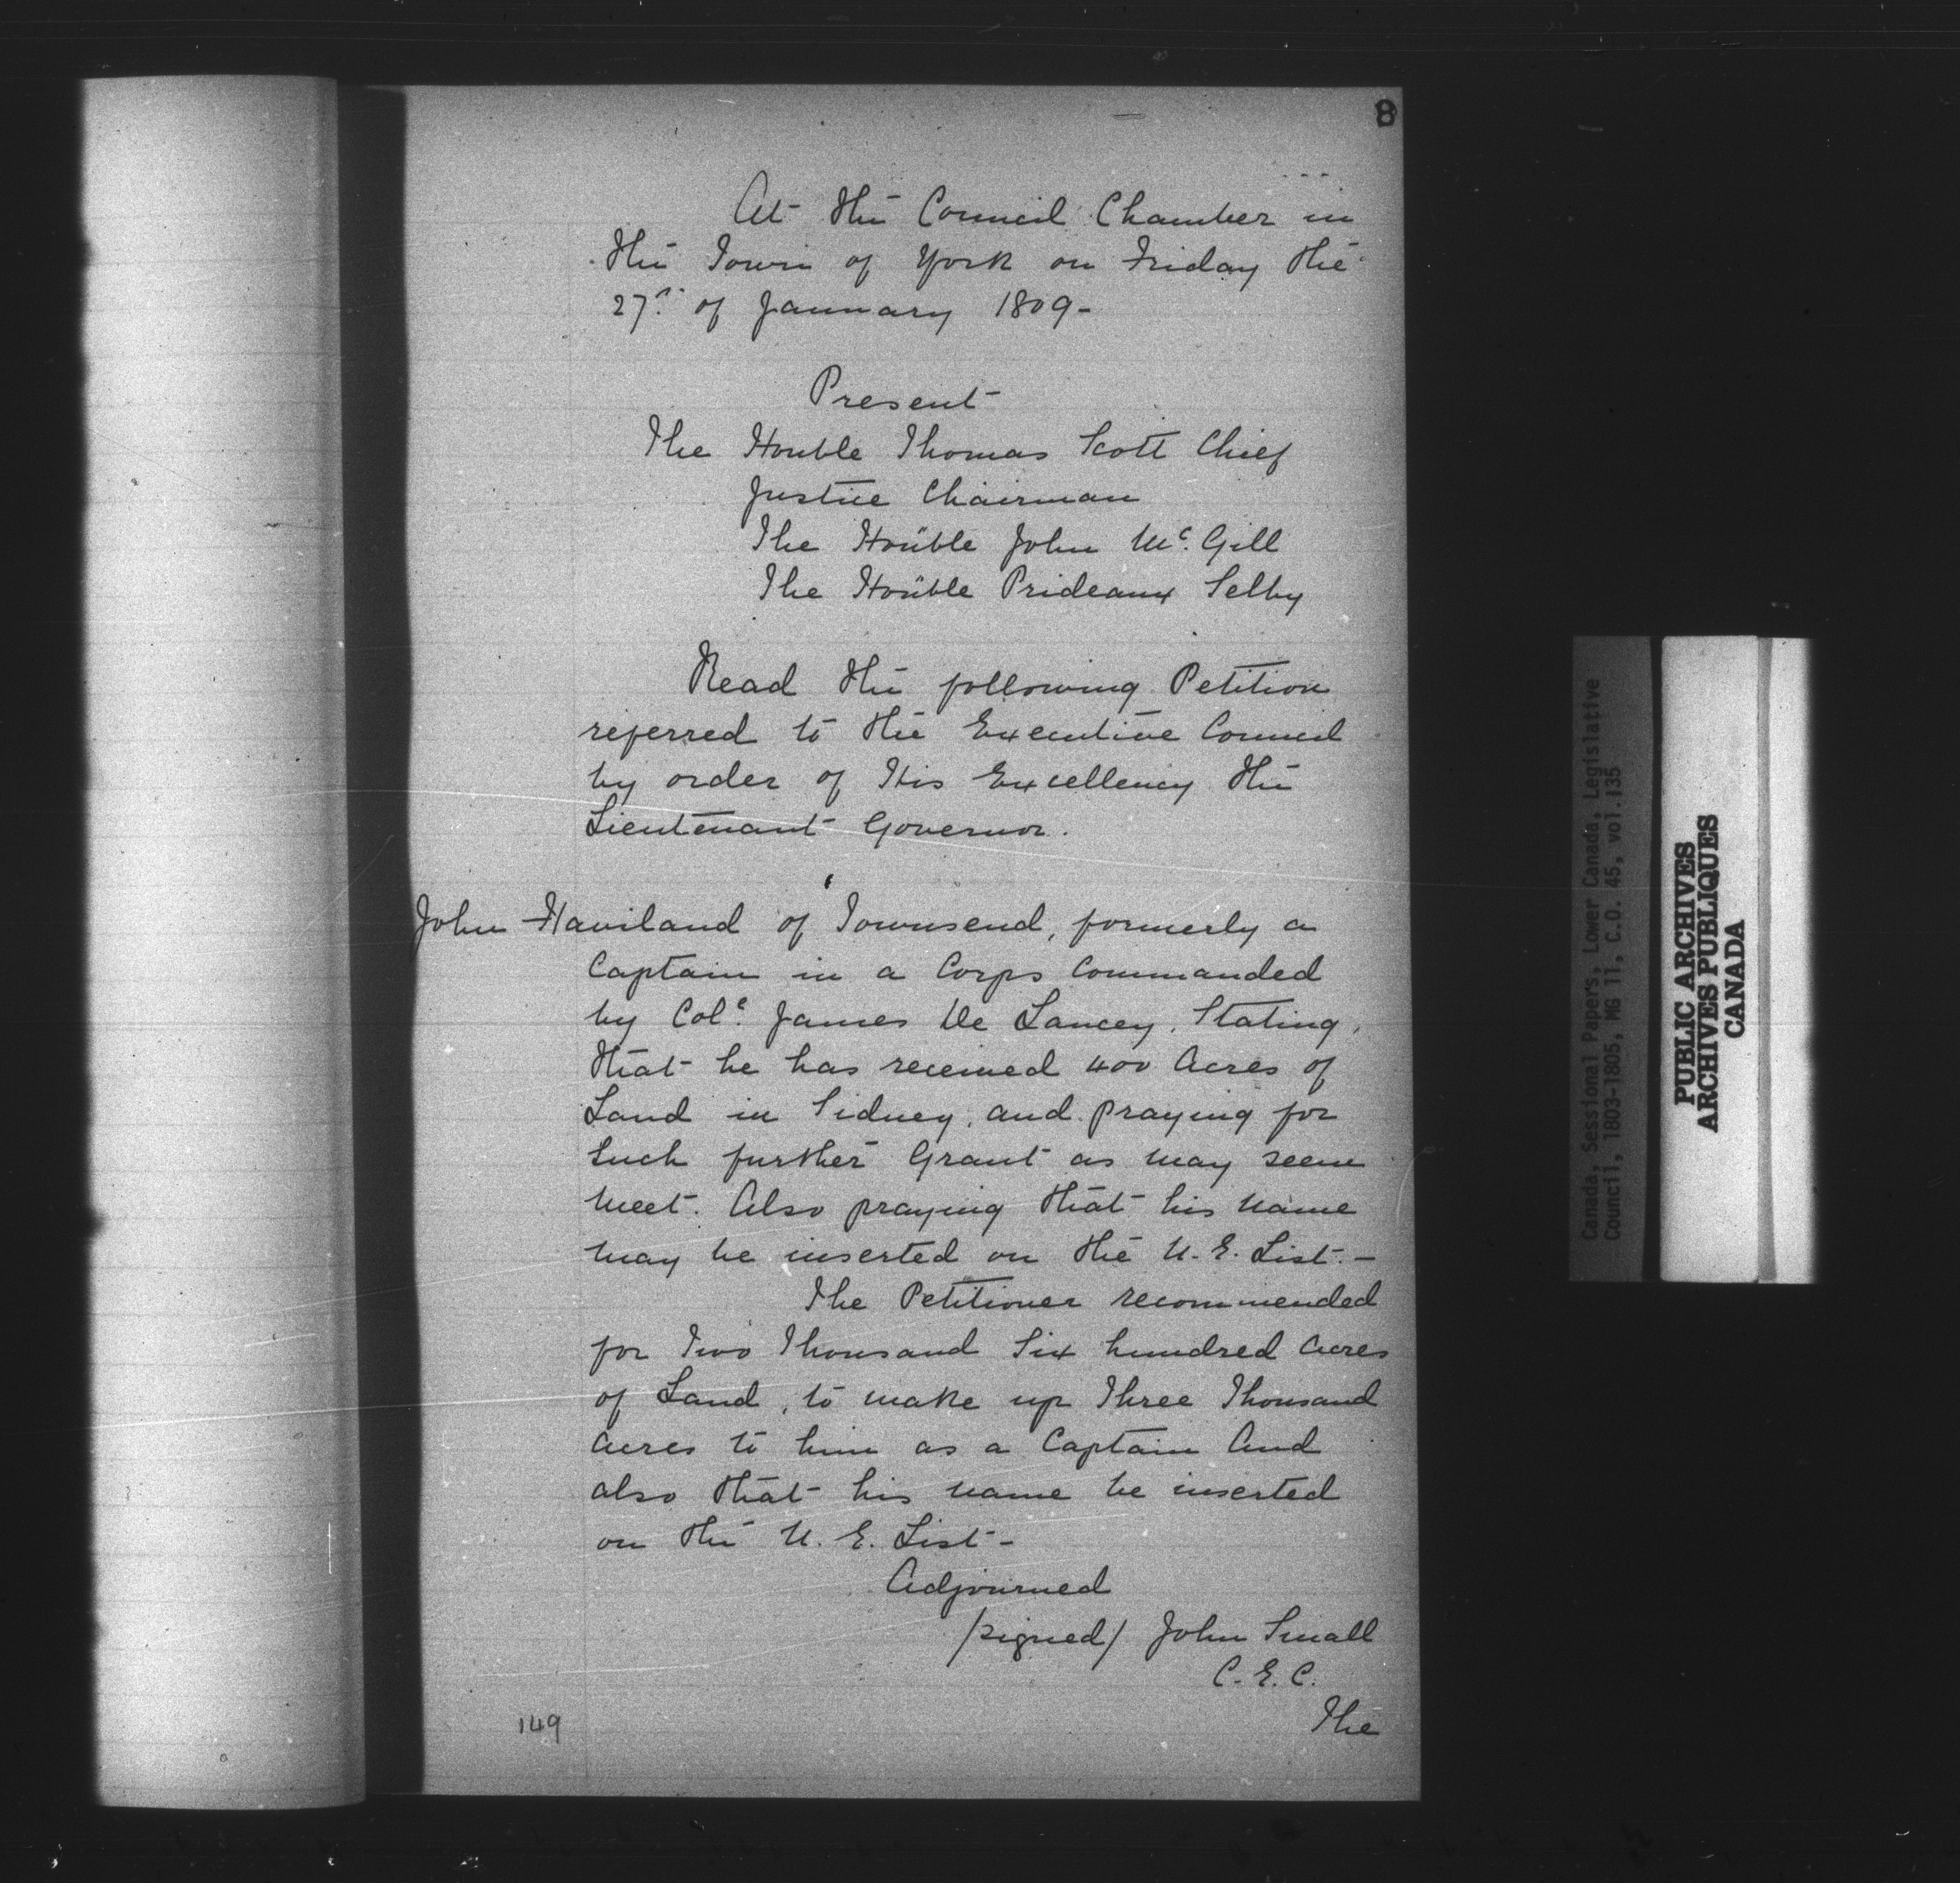 8
At the Council Chamber in
the Town of York on Friday the
27th of January 1809-
Present
The Honble Thomas Scott Chief
Justice Chairman
The Honble John McGill
The Honble Prideaux Selby
Read the following Petition
referred to the Executive Council
by order of His Excellency the
Lieutenant Governor.
John Haviland of Townsend, formerly a
Captain in a Corps Commanded
by Colo. James De Lancey, Stating,
that he has received 400 Acres of
Land in Sidney, and praying for
Such further Grant as may seem
meet. Also praying that his name
may be inserted on the U.E. List.-
The Petitioner recommended
for Two Thousand Six hundred Acres
of Land, to make up Three Thousand
Acres to him as a Captain And
also that his name be inserted
on the U.E. List-
Adjourned
/signed/ John Small
C.E.C.
149
The
Canada, Sessional Papers, Lower Canada, Legislative
Council, 1803-1805, MG 11, C.O. 45, vol.135
PUBLIC ARCHIVES
ARCHIVES PUBLIQUES
CANADA